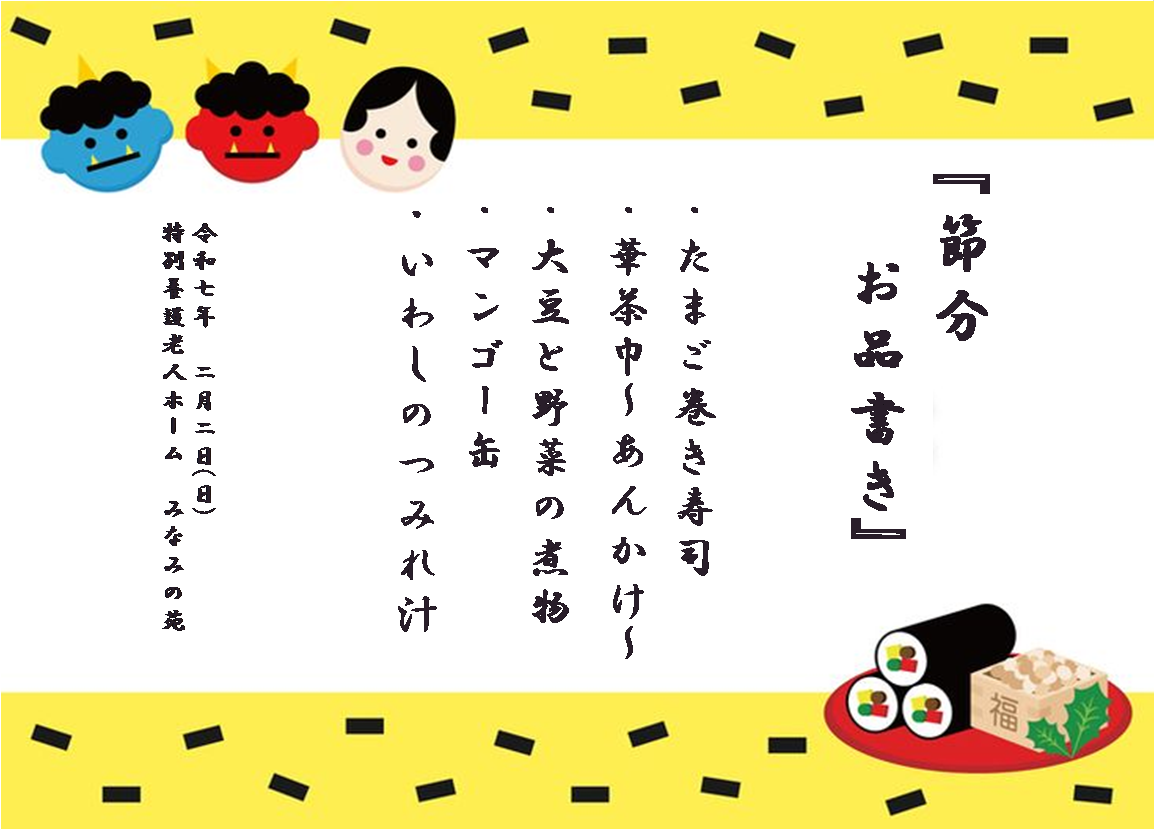 『節分
お品書き』
・たまご巻き寿司
・華茶巾～あんかけ～
・大豆と野菜の煮物
・マンゴー缶
・いわしのつみれ汁
令和七年　二月二日(日)
特別養護老人ホーム　みなみの苑
福